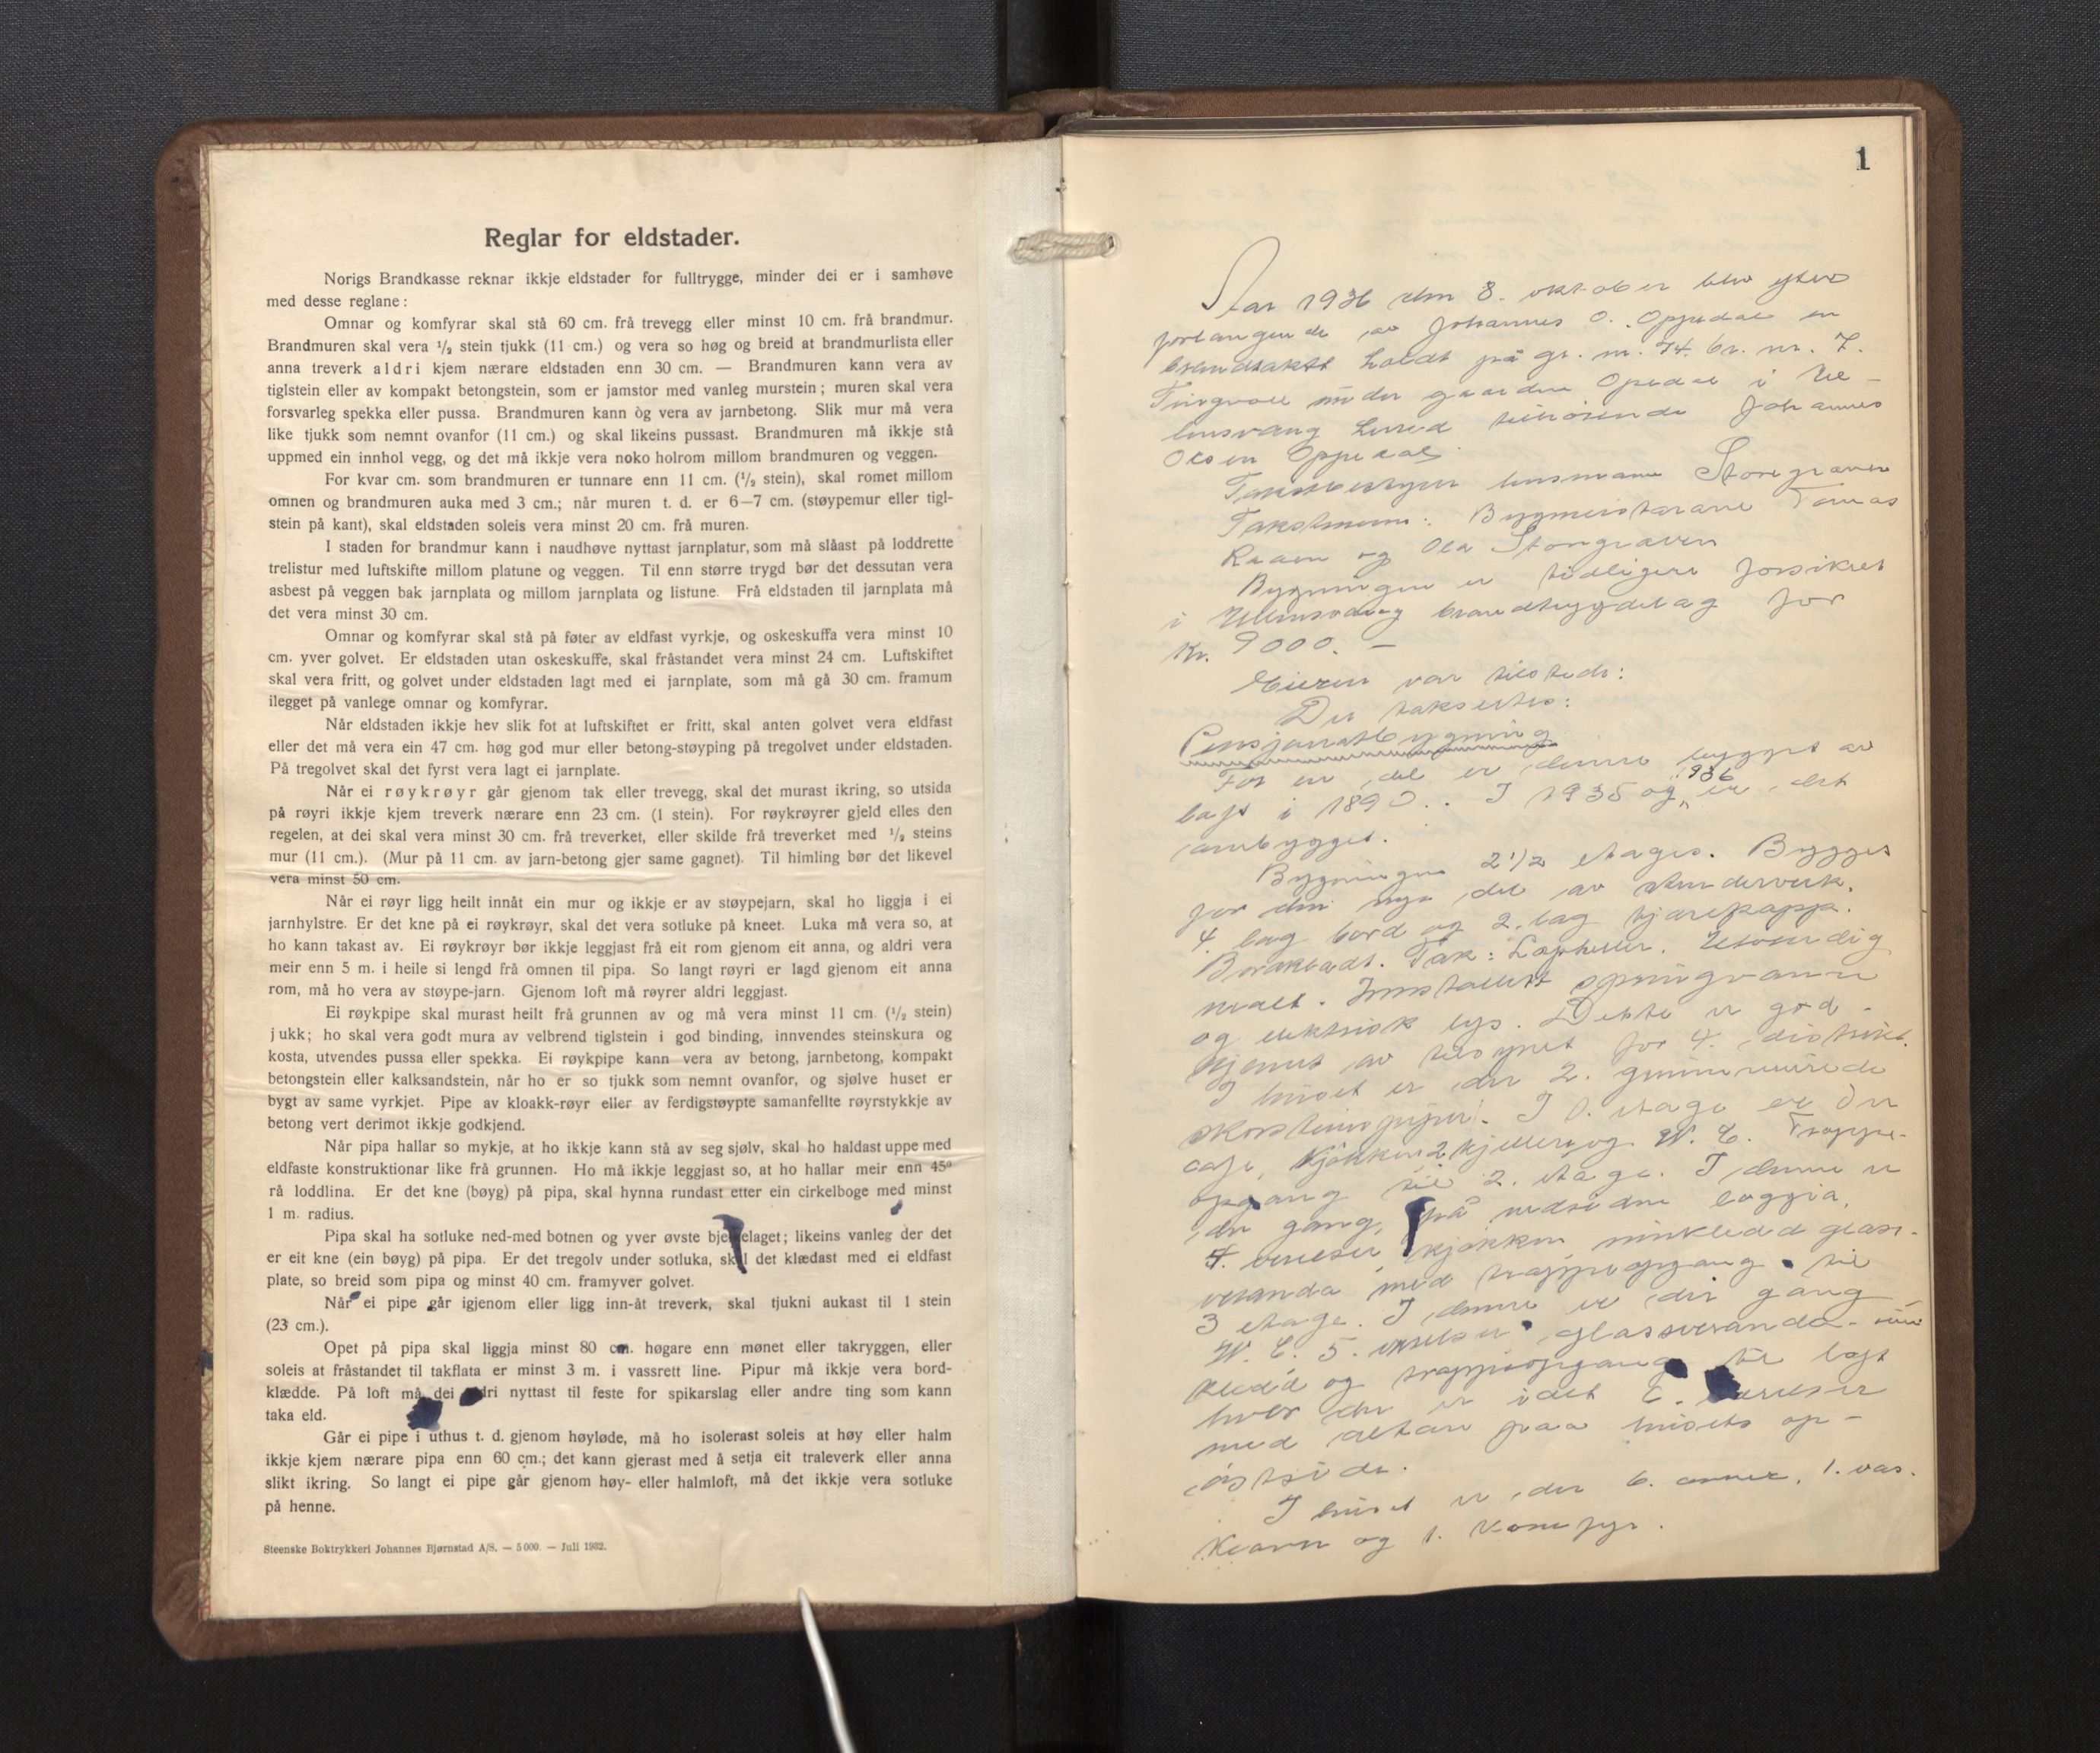 Reglar for eldstader.
Norigs Brandkasse reknar ikkje eldstader for fulltrygge, minder dei er i samhøve
med desse reglane:
Omnar og komfyrar skal stå 60 cm. frå trevegg eller minst 10 cm. frå brandmur.
Brandmuren skal vera ¹/₂ stein tjukk (11 cm.) og vera so høg og breid at brandmurlista eller
anna treverk aldri kjem nærare eldstaden enn 30 cm. — Brandmuren kann vera av
tiglstein eller av kompakt betongstein, som er jamstor med vanleg murstein; muren skal vera
forsvarleg spekka eller pussa. Brandmuren kann òg vera av jarnbetong. Slik mur må vera
like tjukk som nemnt ovanfor (11 cm.) og skal likeins pussast. Brandmuren må ikkje stå
uppmed ein innhol vegg, og det må ikkje vera noko holrom millom brandmuren og veggen.
For kvar cm. som brandmuren er tunnare enn 11 cm. (¹/₂ stein), skal romet millom
omnen og brandmuren auka med 3 cm.; når muren t. d. er 6—7 cm. (støypemur eller tigl-
stein på kant), skal eldstaden soleis vera minst 20 cm. frå muren.
I staden for brandmur kann i naudhøve nyttast jarnplatur, som må slåast på loddrette
trelistur med luftskifte millom platune og veggen. Til enn større trygd bør det dessutan vera
asbest på veggen bak jarnplata og millom jarnplata og listune. Frå eldstaden til jarnplata må
det vera minst 30 cm.
Omnar og komfyrar skal stå på føter av eldfast vyrkje, og oskeskuffa vera minst 10
cm. yver golvet. Er eldstaden utan oskeskuffe, skal fråstandet vera minst 24 cm. Luftskiftet
skal vera fritt, og golvet under eldstaden lagt med ei jarnplate, som må gå 30 cm. framum
ilegget på vanlege omnar og komfyrar.
Når eldstaden ikkje hev slik fot at luftskiftet er fritt, skal anten golvet vera eldfast
eller det må vera ein 47 cm. høg god mur eller betong-støyping på tregolvet under eldstaden.
På tregolvet skal det fyrst vera lagt ei jarnplate.
Når ei røykrøyr går gjenom tak eller trevegg, skal det murast ikring, so utsida
på røyri ikkje kjem treverk nærare enn 23 cm. (1 stein). For røykrøyrer gjeld elles den
regelen, at dei skal vera minst 30 cm. frå treverket, eller skilde frå treverket med ¹/₂ steins
mur (11 cm.). (Mur på 11 cm. av jarn-betong gjer same gagnet). Til himling bør det likevel
vera minst 50 cm.
Når ei røyr ligg heilt innåt ein mur og ikkje er av støypejarn, skal ho liggja i ei
jarnhylstre. Er det kne på ei røykrøyr, skal det vera sotluke på kneet. Luka må vera so, at
ho kann takast av. Ei røykrøyr bør ikkje leggjast frå eit rom gjenom eit anna, og aldri vera
meir enn 5 m. i heile si lengd frå omnen til pipa. So langt røyri er lagd gjenom eit anna
rom, må ho vera av støype-jarn. Gjenom loft må røyrer aldri leggjast.
Ei røykpipe skal murast heilt frå grunnen av og må vera minst 11 cm. (¹/₂ stein)
jukk; ho skal vera godt mura av velbrend tiglstein i god binding, innvendes steinskura og
kosta, utvendes pussa eller spekka. Ei røykpipe kann vera av betong, jarnbetong, kompakt
betongstein eller kalksandstein, når ho er so tjukk som nemnt ovanfor, og sjølve huset er
bygt av same vyrkjet. Pipe av kloakk-røyr eller av ferdigstøypte samanfellte røyrstykkje av
betong vert derimot ikkje godkjend.
Når pipa hallar so mykje, at ho ikkje kann stå av seg sjølv, skal ho haldast uppe med
eldfaste konstruktionar like frå grunnen. Ho må ikkje leggjast so, at ho hallar meir enn 45º
rå loddlina. Er det kne (bøyg) på pipa, skal hynna rundast etter ein cirkelboge med minst
1 m. radius.
Pipa skal ha sotluke ned-med botnen og yver øvste bjelkelaget; likeins vanleg der det
er eit kne (ein bøyg) på pipa. Er det tregolv under sotluka, skal det klædast med ei eldfast
plate, so breid som pipa og minst 40 cm. framyver golvet.
Når ei pipe går igjenom eller ligg inn-åt treverk, skal tjukni aukast til 1 stein
(23 cm.).
Opet på pipa skal liggja minst 80 cm. høgare enn mønet eller takryggen, eller
soleis at fråstandet til takflata er minst 3 m. i vassrett line. Pipur må ikkje vera bord-
klædde. På loft må dei aldri nyttast til feste for spikarslag eller andre ting som kann
taka eld.
Går ei pipe i uthus t. d. gjenom høyløde, må ho isolerast soleis at høy eller halm
ikkje kjem nærare pipa enn 60 cm.; det kann gjerast med å setja eit traleverk eller anna
slikt ikring. So langt ei pipe går gjenom høy- eller halmloft, må det ikkje vera sotluke
på henne.
Steenske Boktrykkeri Johannes Bjørnstad A/S. — 5000. — Juli 1932.
1
Aar 1936 den 8. oktober blev efter
forlangende av Johannes O. Oppedal en
brandtakst holdt på gr. nr. 74. br. nr. 7.
Tingvoll under gaarden Opedal i Ul-
lensvang herred tilhørende Johannes
Olsen Oppedal.
Takstbestyrer lensmann Storegraven
Takstmenn: Bygmeistarane Tomas
Raaen og Ola Storegraven
Bygningen er tidligere forsikret
i Ullensvang brandtrygdelag for
Kr. 9000. —
Eieren var tilstede:
Der taksertes:
Pensjonatbygning
For en del er denne bygget av
laft i 1890. I 1935 og 1936 er det
ombygget.
Bygningen 2 1/2 etages. Bygget
for den nye del av stenderverk.
4. lag bord og 2. lag tjærepapp.
Bordklædt. Tak: Lapheller. Utvendig
malt. Innstallert springvann
og elektrisk lys. Dette er god-
kjennt av tilsynet for 4. distrikt.
I huset er der 2. grunnmurede
skorsteinspiper. I 1. etage er der
cafe, kjøkken 2 kjellere og W. C. Trappe-
opgang til 2. etage. I denne er
der gang, på nedsiden loggia,
4. værelser, kjøkken innkledd glass-
veranda med trappeopgang til
3 etage. I denne er der gang
W. C. 5. værelser glassveranda inn
kledd og trappeopgang til loft
hvor der er idet 6. værelser
med altan paa husets op-
østside.
I huset er der 6. ovner, 1. vas-
keovn og 1. komfyr.